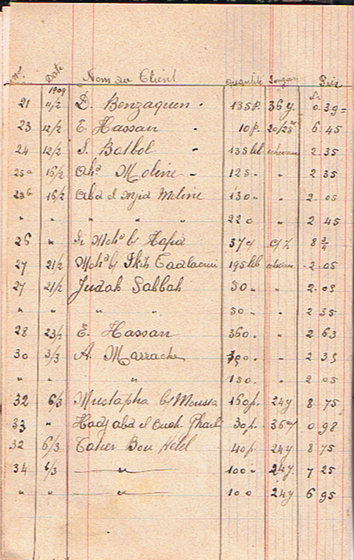 Nos. Date Nom du Client Quantité Longueur Prix
1909 £
21 11/2 D. Benzaquen - 135 p. 36 y. 0.39=
23 12/2 E. Hassan - 10 p. 20/25 6.45
24 12/2 S. Balbol - 135 bll 2.35
25a 15/2 Ahd Moline - 125 - " 2.35
25b 16/2 Abd l Mjid Moline 130 - " 2.05
" " " " " 220 " 2.45
26 " Si Mohd b Hafid 37 y 8 3/4
27 21/2 Mohd b Skih Tadlaoui 195 bll 2.05
27 21/2 Judah Sabbah 50 - " 2.05
" " " 50 - " 2.35
28 23/2 E. Hassan 360 - " 2.63
30 3/3 A. Marrache 300 - " 2.35
" " " 150 - " 2.05
32 6/3 Mustapha b Moussa 150 p. 24 y 8 75
33 " Hadj abd el Ouah 30 p. 36 y 0.98
32 6/3 Taher Bou Helel 40 p. 24 y 8 75
34 6/3 " 100 " 24 y. 7 25
" " " 100 24 y 6 95